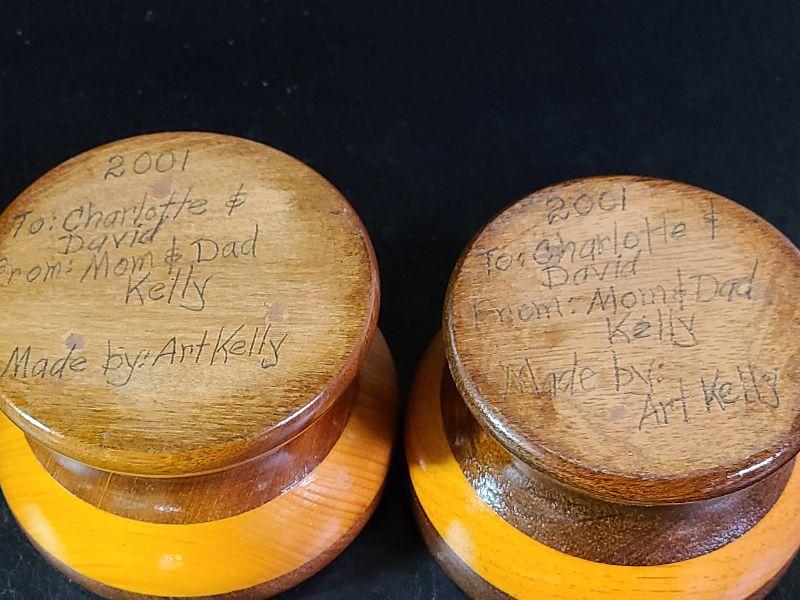 2001
To: Charlotte &
David
From: Mom & Dad
Kelly
Made by: Art Kelly
2001
To: Charlotte &
David
From: Mom & Dad
Kelly
Made by:
Art Kelly